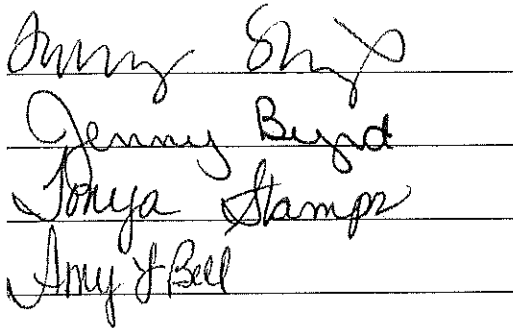 Jenny Byrd
Tonya Stamps
Amy F Bell